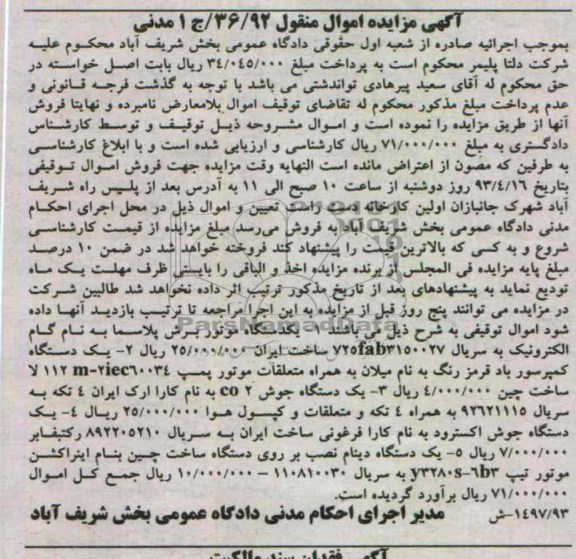 آگهی مزایده اموال منقول ۳۶/۹۲/ج ۱ مدنی
بموجب اجرائیه صادره از شعبه اول حقوقی دادگاه عمومی بخش شریف آباد محکوم علیه
شرکت دلتا پلیمر محکوم است به پرداخت مبلغ ۳۴/۰۴۵/۰۰۰ ریال بابت اصل خواسته در
حق محکوم له آقای سعید پیرهادی تواندشتی می باشد با توجه به گذشت فرجه قانونی و
عدم پرداخت مبلغ مذکور محکوم له تقاضای توقیف اموال بلامعارض نامبرده و نهایتا فروش
آنها از طریق مزایده را نموده است و اموال مشروحه ذیل توقیف و توسط کارشناس
دادگستری به مبلغ ۷۱/۰۰۰/۰۰۰ ریال کارشناسی و ارزیابی شده است و با ابلاغ کارشناسی
به طرفین که مصون از اعتراض مانده است النهایه وقت مزایده جهت فروش اموال توقیفی
بتاریخ ۹۳/۴/۱۶ روز دوشنبه از ساعت ۱۰ صبح الی ۱۱ به آدرس بعد از پلیس راه شریف
آباد شهرک جانبازان اولین کارخانه سمت راست تعیین و اموال ذیل در محل اجرای احکام
مدنی دادگاه عمومی بخش شریف آباد به فروش می‌رسد مبلغ مزایده از قیمت کارشناسی
شروع و به کسی که بالاترین قیمت را پیشنهاد کند فروخته خواهد شد در ضمن ۱۰ درصد
مبلغ پایه مزایده فی المجلس از برنده مزایده اخذ و الباقی را بایستی ظرف مهلت یک ماه
تودیع نماید به پیشنهادهای بعد از تاریخ مذکور ترتیب اثر داده نخواهد شد طالبین شرکت
در مزایده می توانند پنج روز قبل از مزایده به این اجرا مراجعه تا ترتیب بازدید آنها داده
شود اموال توقیفی به شرح ذیل می باشد ۱- یکدستگاه موتور برش پلاسما به نام گام
الکترونیک به سریال ۷۲۵fab۳۱۵۰۰۲۷ ساخت ایران ۲۵/۰۰۰/۰۰۰ ریال ۲- یک دستگاه
کمپرسور باد قرمز رنگ به نام میلان به همراه متعلقات موتور پمپ m-۲iec۶۰۰۳۴ ۱۱۲ لا
ساخت چین ۴/۰۰۰/۰۰۰ ریال ۳- یک دستگاه جوش co ۲ به نام کارا ارک ایران ۴ تکه به
سریال ۹۲۶۲۱۱۱۵ به همراه ۴ تکه و متعلقات و کپسول هوا ۲۵/۰۰۰/۰۰۰ ریال ۴- یک
دستگاه جوش اکسترود به نام کارا فرغونی ساخت ایران به سریال ۸۹۲۲۰۵۲۱۰ رکتیفایر
۷/۰۰۰/۰۰۰ ریال ۵- یک دستگاه دینام نصب بر روی دستگاه ساخت چین بنام اینراکشن
موتور تیپ y۳۲۸۰s-۶b۳ به سریال ۱۱۰۸۲۰۰۳۰ – ۱۰/۰۰۰/۰۰۰ ریال جمع کل اموال
۷۱/۰۰۰/۰۰۰ ریال برآورد گردیده است.
۱۴۹۷/۹۳-ش مدیر اجرای احکام مدنی دادگاه عمومی بخش شریف آباد
ParsNamadData
آگهی فقدان سند مالکیت